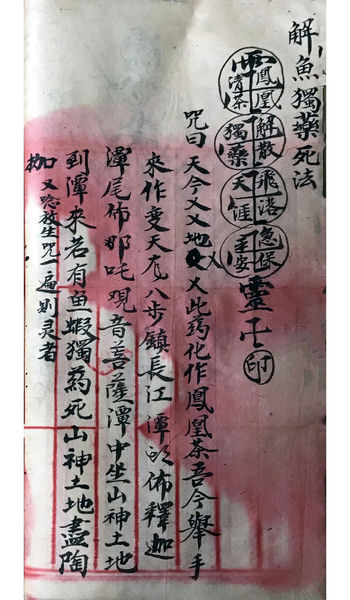 解魚獨藥死法
鳳凰解散飛落急保
清茶獨藥天涯安
靈印
咒曰天今乂乂地乂乂此药化作鳳凰茶吾今舉手
來作变天八步鎮長江潭佈釋迦
潭尾佈那吒观音菩薩潭中坐山神土地
到潭來若有鱼蝦獨药死山神土地盡陶
枷又唸放生咒一遍别灵者